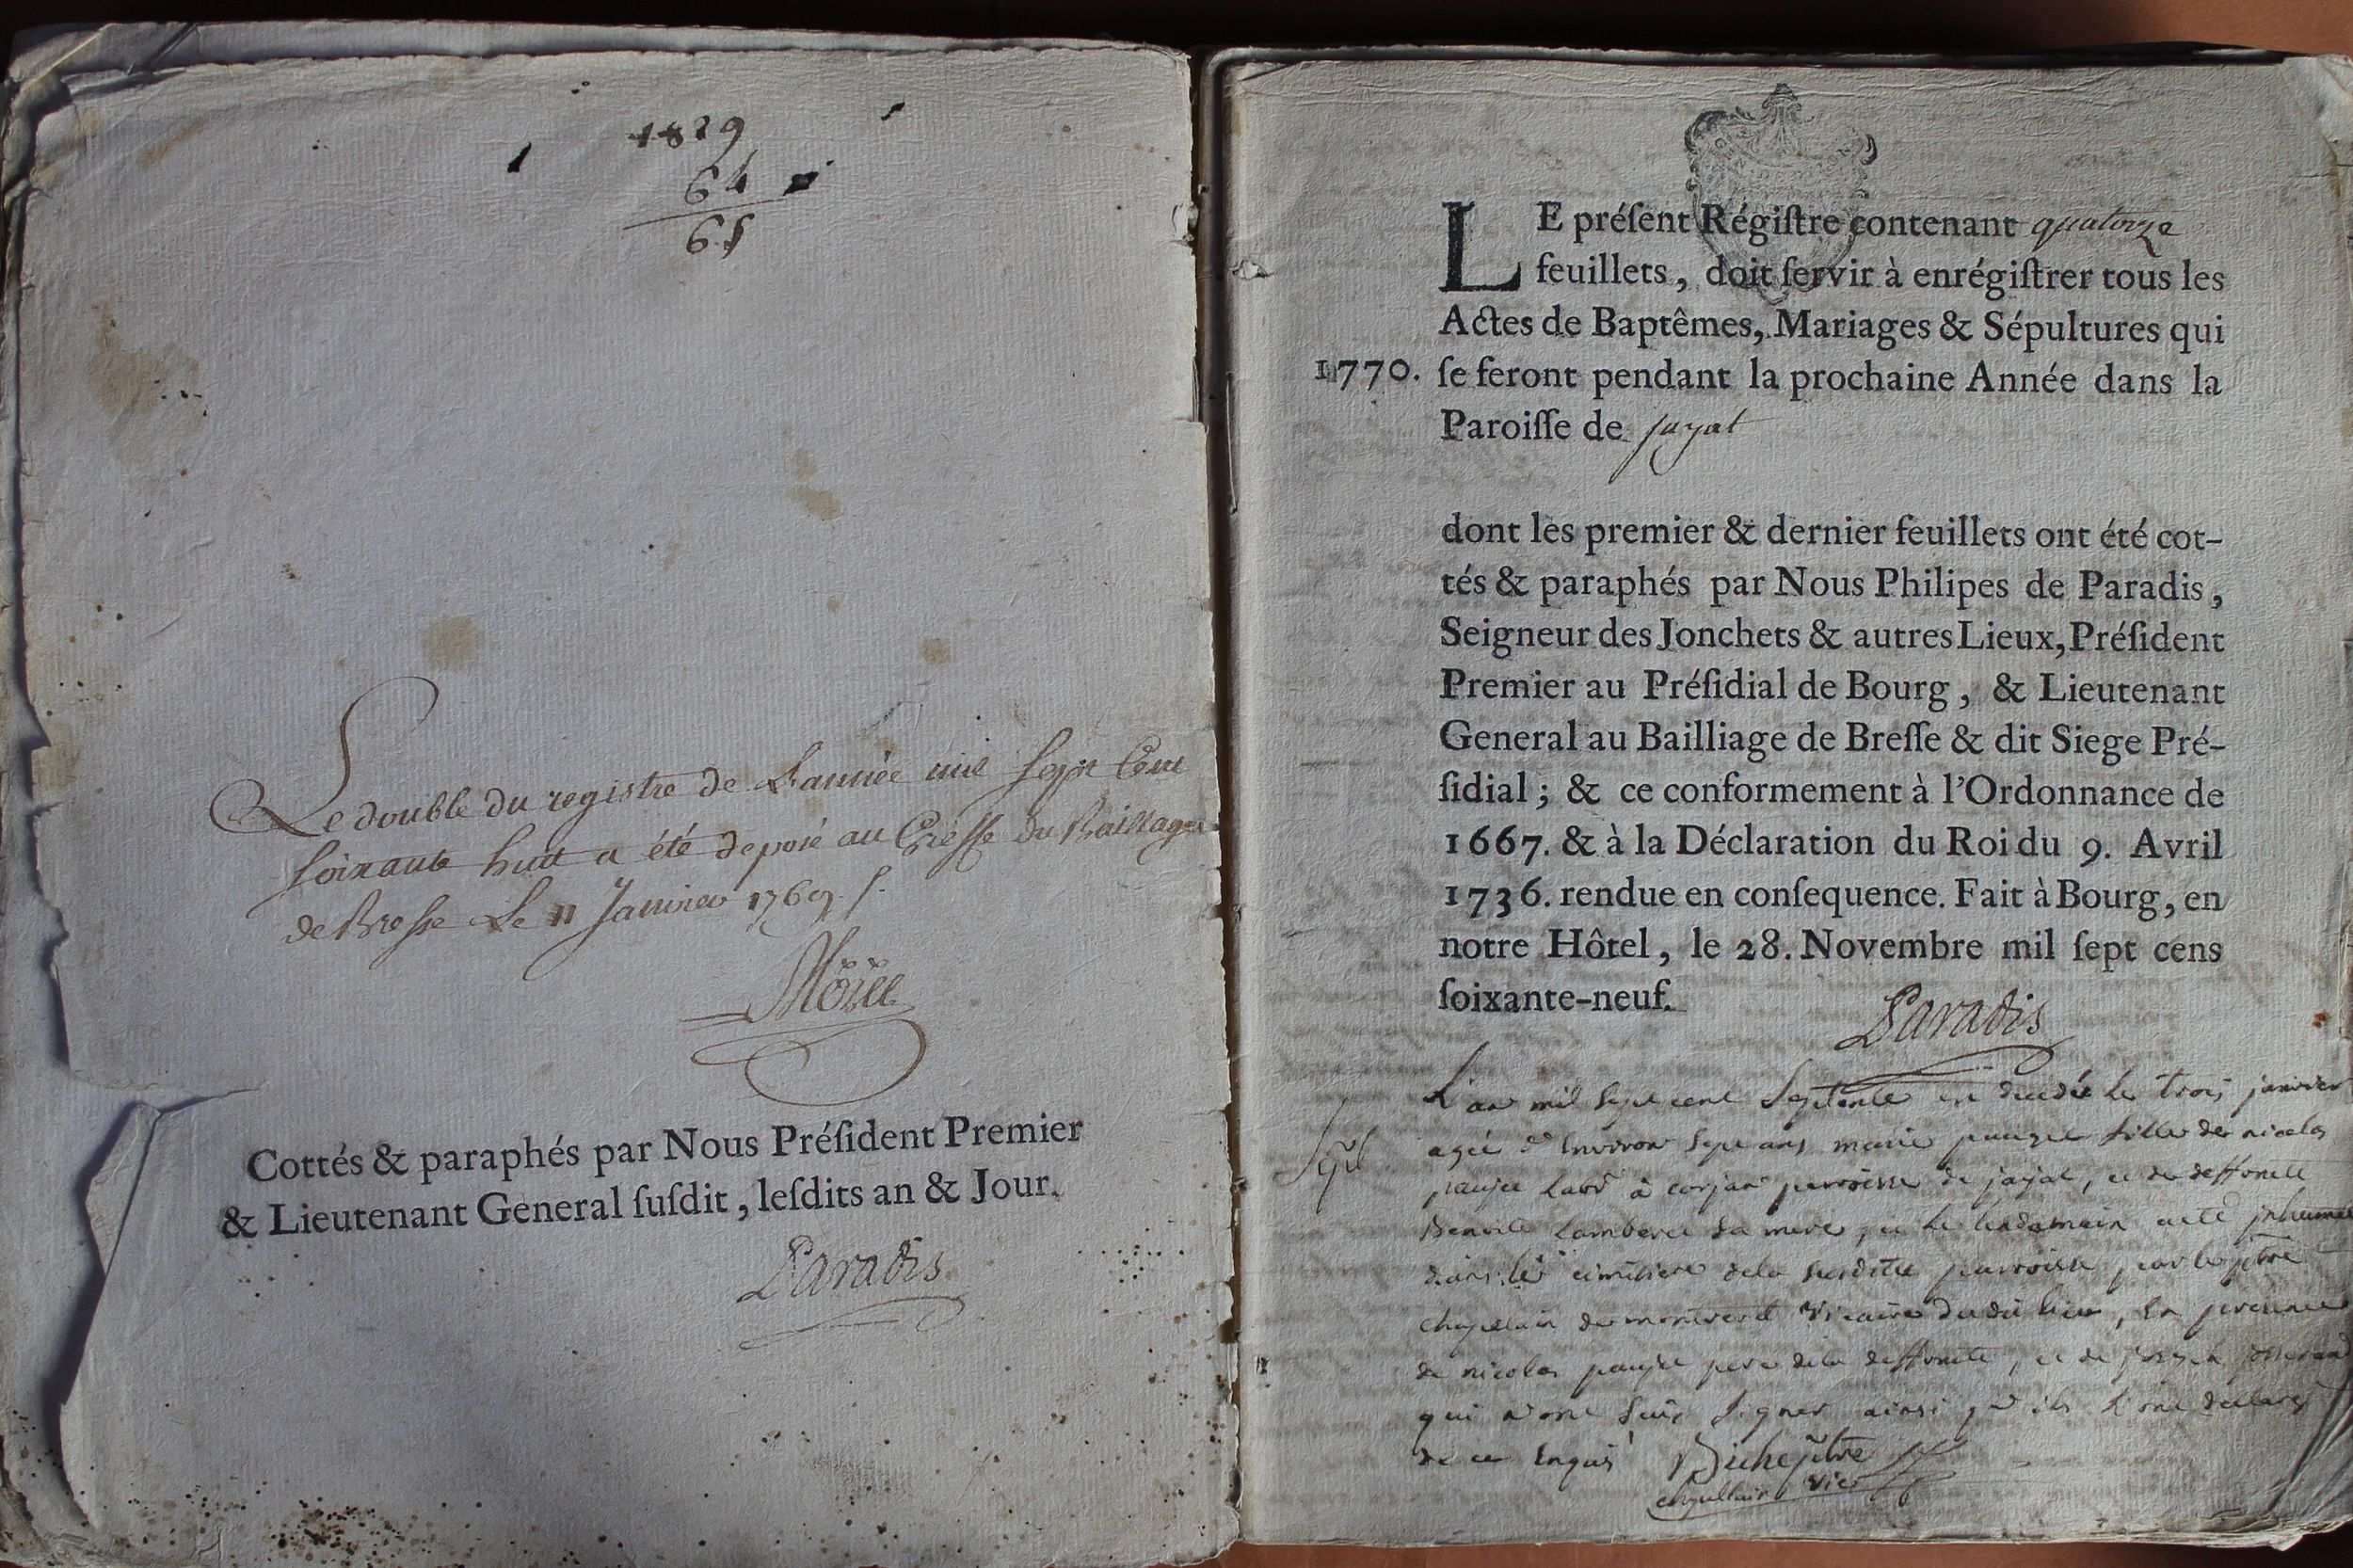 1829
64
65
Le double du registre de L'année mil Sept Cent
soixante huit a été deposé au Greffe du Bailliage
de Bresse Le 11 Janvier 1769
Cottés & paraphés par Nous Préſident Premier
& Lieutenant General ſuſdit, leſdits an & Jour.
Paradis
LE préſent Régiſtre contenant quatorze
feuillets, doit ſervir à enrégiſtrer tous les
Actes de Baptêmes, Mariages & Sépultures qui
1770. ſe feront pendant la prochaine Année dans la
Paroiſſe de jayat
dont les premier & dernier feuillets ont été cot-
tés & paraphés par Nous Philipes de Paradis,
Seigneur des Jonchets & autres Lieux, Préſident
Premier au Préſidial de Bourg, & Lieutenant
General au Bailliage de Breſſe & dit Siege Pré-
ſidial; & ce conformement à l'Ordonnance de
1667. & à la Déclaration du Roi du 9. Avril
1736. rendue en conſequence. Fait à Bourg, en
notre Hôtel, le 28. Novembre mil ſept cens
ſoixante-neuf.
Paradis
L'an mil sept cent septente est decedée le trois janvier
agée d'environ sept ans marie fille de nicolas
à parroisse de jayat, et de deffunte
Benoite sa mere, et le lendemain a eté inhumée
dans le cimitiere de la susditte parroisse par le ptre
chapellain de montrevel vicaire du dit lieu, en presence
de nicolas pere de la deffunte, et de joseph
qui n'ont sçus signer ainsi qu'ils l'ont declarés
de ce enquis
vic